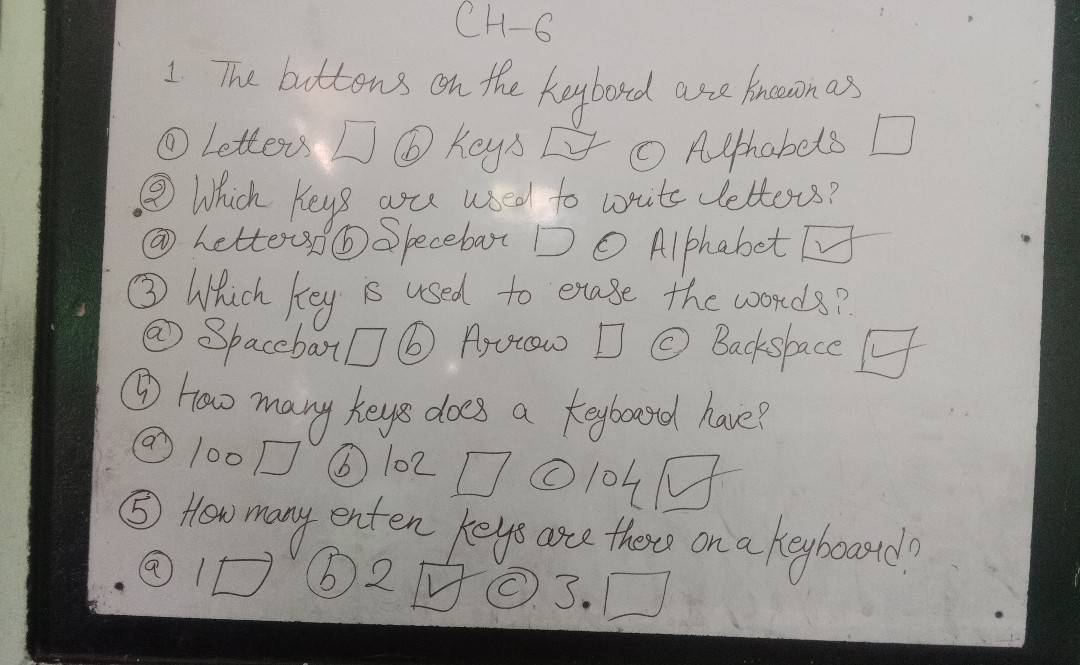 CH-6
1. The buttons on the keybord are knowon as
ⓐ Letters ☐ ⓑ Keys ☑ ⓒ Alphabets ☐
② Which keys are used to write letters?
ⓐ Letters ☐ ⓑ Specebar ☐ ⓒ Alphabet ☑
③ Which key is used to erase the words?
ⓐ Spacebar ☐ ⓑ Arrow ☐ ⓒ Backspace ☑
④ How many keys does a keyboard have?
ⓐ 100 ☐ ⓑ 102 ☐ ⓒ 104 ☑
⑤ How many enten keys are there on a keyboard?
ⓐ 1 ☐ ⓑ 2 ☑ ⓒ 3. ☐